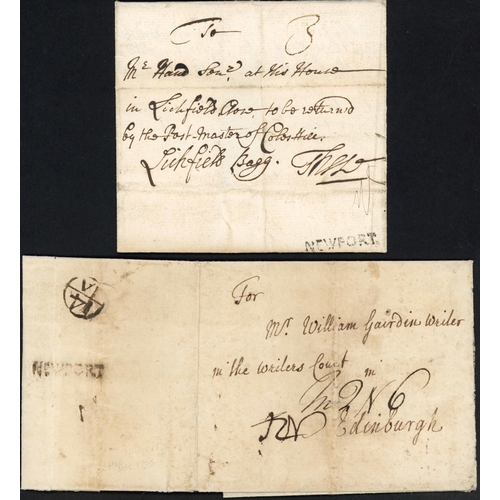 To 3
Mr Hand Senr at His House
in Lichfield Close, to be return'd
by the Post Master of Coleshill
Lichfield Bagg. These
NEWPORT.
For
Mr William Gairdin Writer
in the Writers Court in
2 N 6
Edinburgh
NEWPORT